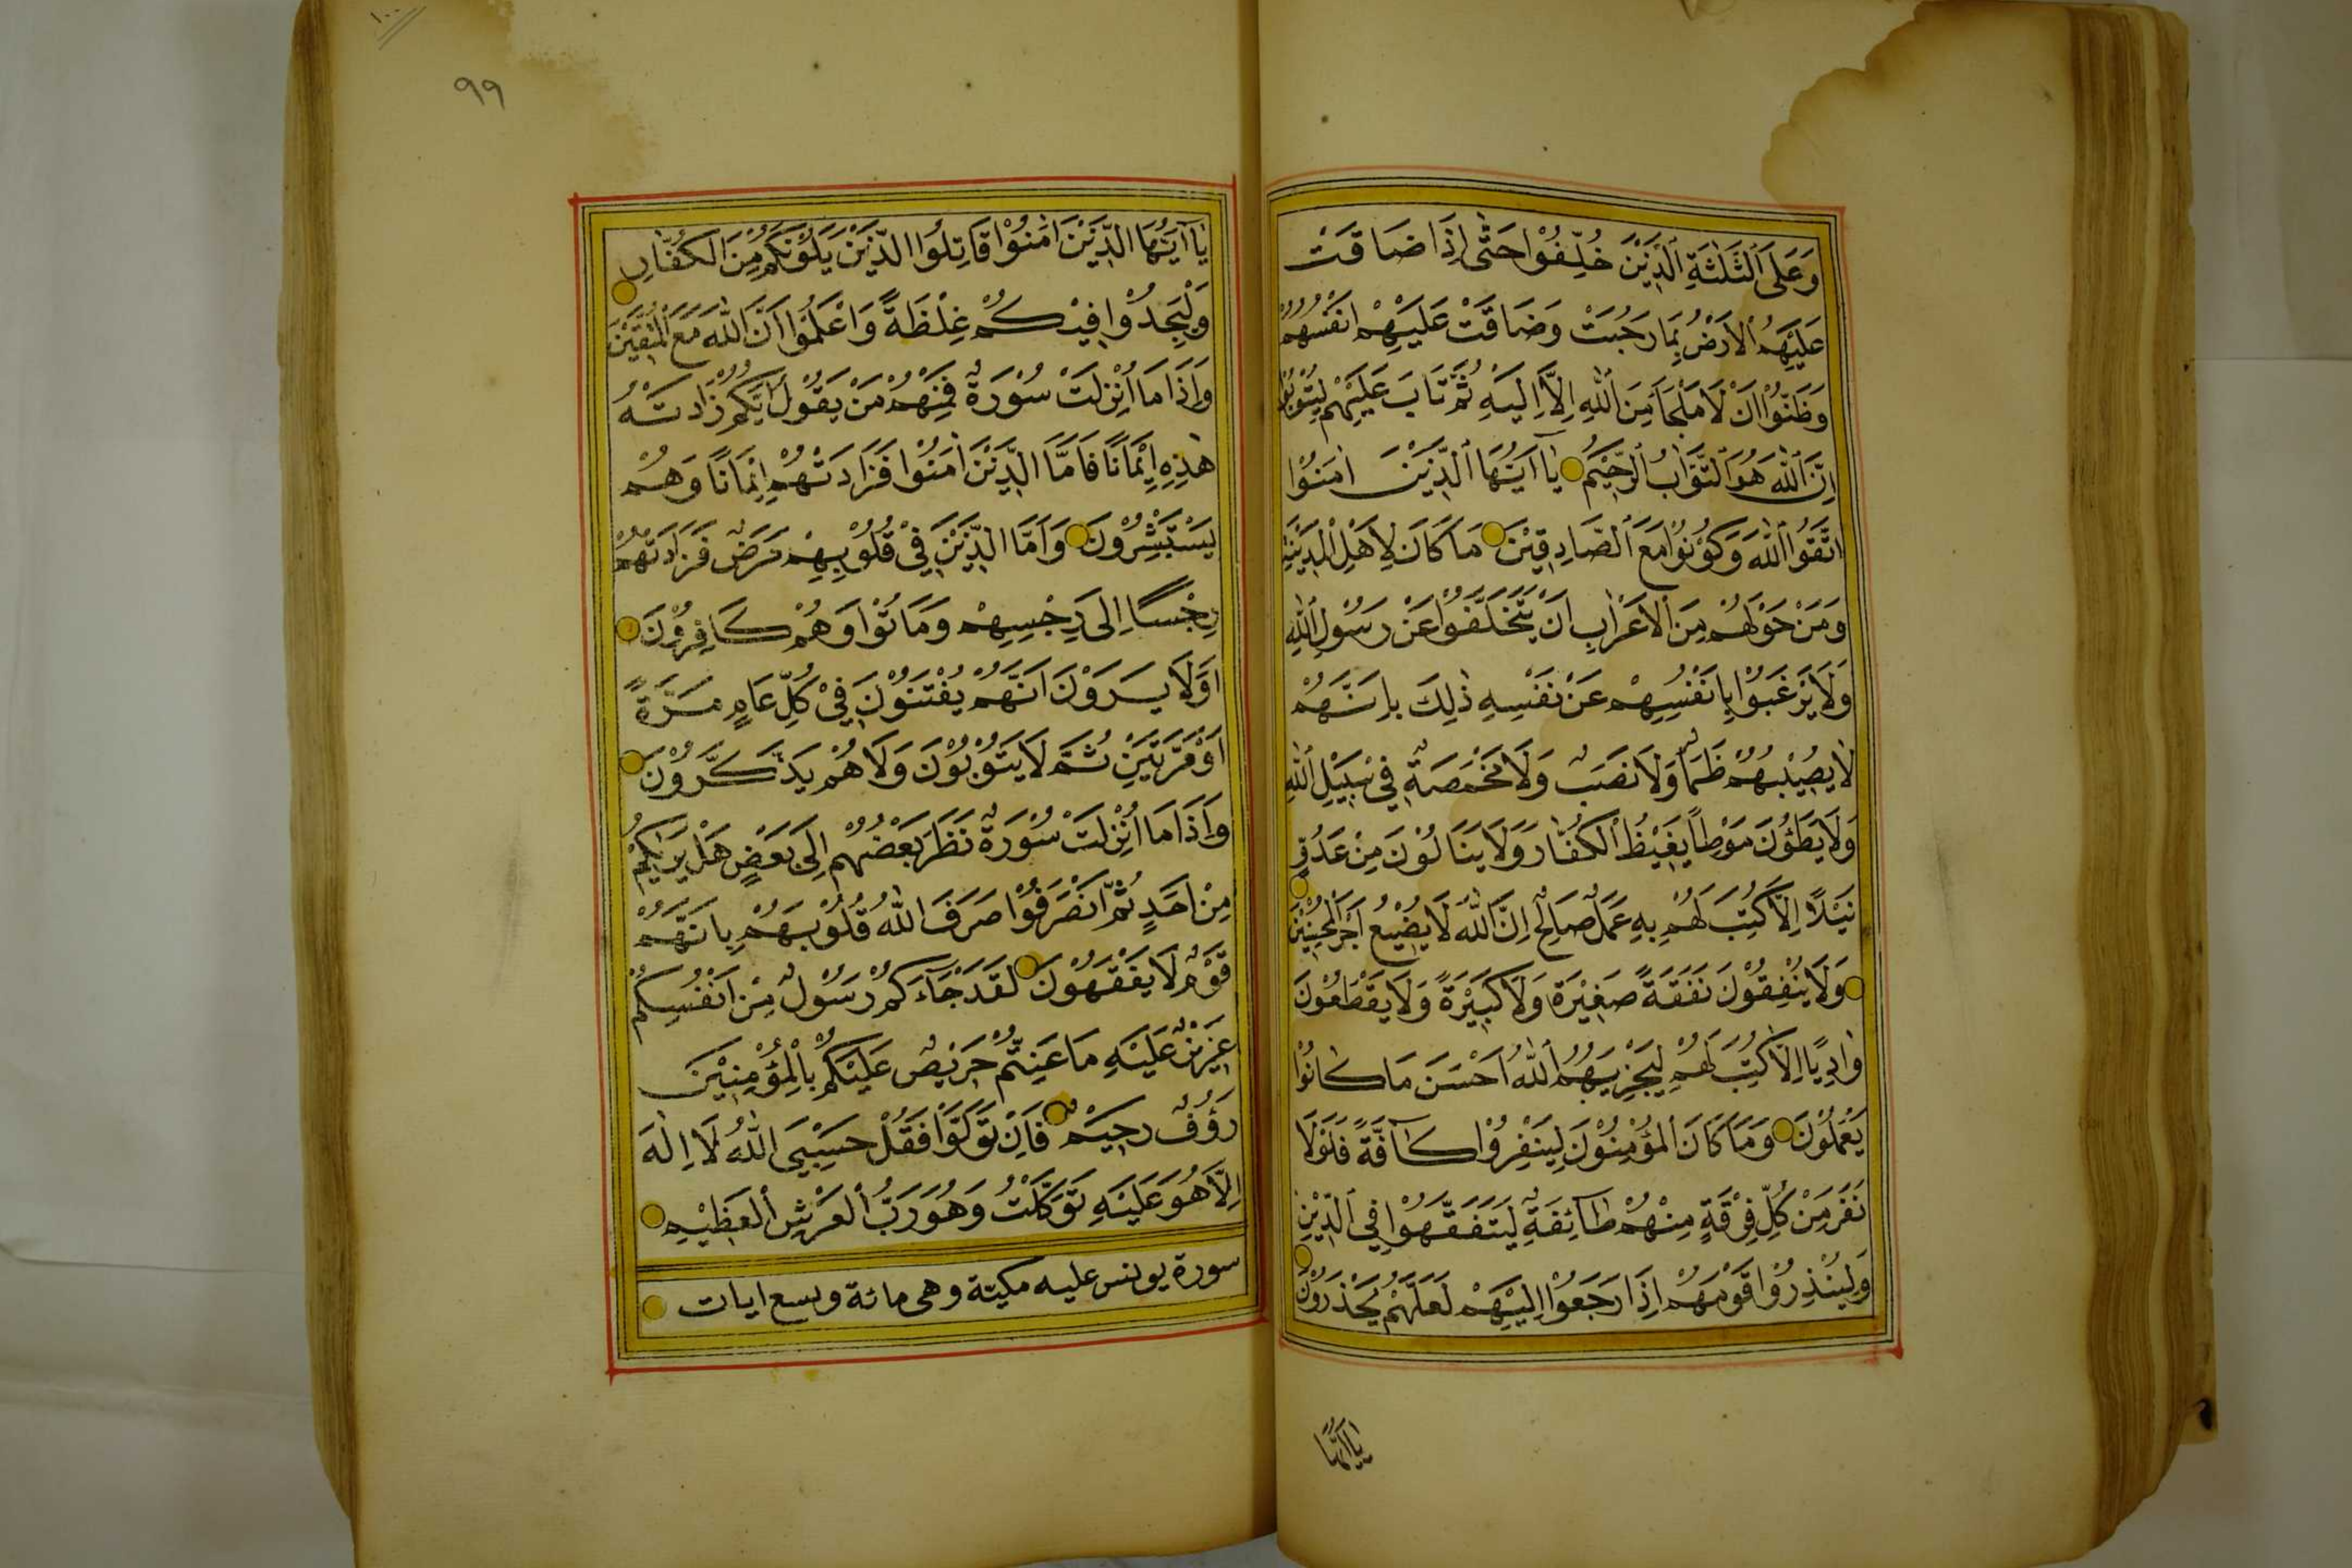 وَعَلَى ٱلثَّلٰثَةِ ٱلَّذِيْنَ خُلِّفُوْا حَتّٰى اِذَا ضَاقَتْ
عَلَيْهِمُ ٱلْاَرْضُ بِمَا رَحُبَتْ وَضَاقَتْ عَلَيْهِمْ اَنْفُسُهُمْ
وَظَنُّوْا اَنْ لَا مَلْجَاَ مِنَ ٱللّٰهِ اِلَّا اِلَيْهِ ثُمَّ تَابَ عَلَيْهِمْ لِيَتُوْبُوْا
اِنَّ ٱللّٰهَ هُوَ ٱلتَّوَّابُ ٱلرَّحِيْمُ يٰٓا اَيُّهَا ٱلَّذِيْنَ اٰمَنُوْا
اتَّقُوْا ٱللّٰهَ وَكُوْنُوْا مَعَ ٱلصَّادِقِيْنَ مَا كَانَ لِاَهْلِ الْمَدِيْنَةِ
وَمَنْ حَوْلَهُمْ مِنَ ٱلْاَعْرَابِ اَنْ يَتَخَلَّفُوْا عَنْ رَسُوْلِ ٱللّٰهِ
وَلَا يَرْغَبُوْا بِاَنْفُسِهِمْ عَنْ نَفْسِهِ ذٰلِكَ بِاَنَّهُمْ
لَا يُصِيْبُهُمْ ظَمَاٌ وَلَا نَصَبٌ وَلَا مَخْمَصَةٌ فِي سَبِيْلِ ٱللّٰهِ
وَلَا يَطَؤُنَ مَوْطِاً يَغِيْظُ ٱلْكُفَّارَ وَلَا يَنَالُوْنَ مِنْ عَدُوٍّ
نَيْلًا اِلَّا كُتِبَ لَهُمْ بِهِ عَمَلٌ صَالِحٌ اِنَّ ٱللّٰهَ لَا يُضِيْعُ اَجْرَ الْمُحْسِنِيْنَ
وَلَا يُنْفِقُوْنَ نَفَقَةً صَغِيْرَةً وَلَا كَبِيْرَةً وَلَا يَقْطَعُوْنَ
وَادِيًا اِلَّا كُتِبَ لَهُمْ لِيَجْزِيَهُمُ ٱللّٰهُ اَحْسَنَ مَا كَانُوْا
يَعْمَلُوْنَ وَمَا كَانَ ٱلْمُؤْمِنُوْنَ لِيَنْفِرُوْا كَآفَّةً فَلَوْلَا
نَفَرَ مِنْ كُلِّ فِرْقَةٍ مِنْهُمْ طَآئِفَةٌ لِيَتَفَقَّهُوْا فِي ٱلدِّيْنِ
وَلِيُنْذِرُوْا قَوْمَهُمْ اِذَا رَجَعُوْا اِلَيْهِمْ لَعَلَّهُمْ يَحْذَرُوْنَ
يٰا اَيُّهَا
١٠٠
٩٩
يٰٓا اَيُّهَا الَّذِيْنَ اٰمَنُوْا قَاتِلُوا الَّذِيْنَ يَلُوْنَكُمْ مِنَ الْكُفَّارِ
وَلْيَجِدُوْا فِيْكُمْ غِلْظَةً وَاعْلَمُوْا اَنَّ اللّٰهَ مَعَ الْمُتَّقِيْنَ
وَاِذَا مَا اُنْزِلَتْ سُوْرَةٌ فَمِنْهُمْ مَنْ يَقُوْلُ اَيُّكُمْ زَادَتْهُ
هٰذِهِ اِيْمَانًا فَاَمَّا الَّذِيْنَ اٰمَنُوْا فَزَادَتْهُمْ اِيْمَانًا وَهُمْ
يَسْتَبْشِرُوْنَ وَاَمَّا الَّذِيْنَ فِيْ قُلُوْبِهِمْ مَرَضٌ فَزَادَتْهُمْ
رِجْسًا اِلٰى رِجْسِهِمْ وَمَاتُوْا وَهُمْ كَافِرُوْنَ
اَوَلَا يَرَوْنَ اَنَّهُمْ يُفْتَنُوْنَ فِيْ كُلِّ عَامٍ مَرَّةً
اَوْ مَرَّتَيْنِ ثُمَّ لَا يَتُوْبُوْنَ وَلَا هُمْ يَذَّكَّرُوْنَ
وَاِذَا مَا اُنْزِلَتْ سُوْرَةٌ نَظَرَ بَعْضُهُمْ اِلٰى بَعْضٍ هَلْ يَرٰىكُمْ
مِنْ اَحَدٍ ثُمَّ انْصَرَفُوْا صَرَفَ اللّٰهُ قُلُوْبَهُمْ بِاَنَّهُمْ
قَوْمٌ لَا يَفْقَهُوْنَ لَقَدْ جَآءَكُمْ رَسُوْلٌ مِنْ اَنْفُسِكُمْ
عَزِيْزٌ عَلَيْهِ مَا عَنِتُّمْ حَرِيْصٌ عَلَيْكُمْ بِالْمُؤْمِنِيْنَ
رَؤُفٌ رَحِيْمٌ فَاِنْ تَوَلَّوْا فَقُلْ حَسْبِيَ اللّٰهُ لَا اِلٰهَ
اِلَّا هُوَ عَلَيْهِ تَوَكَّلْتُ وَهُوَ رَبُّ ٱلْعَرْشِ ٱلْعَظِيْمِ
سورة يونس عليه مكية وهى مائة وتسع ايات